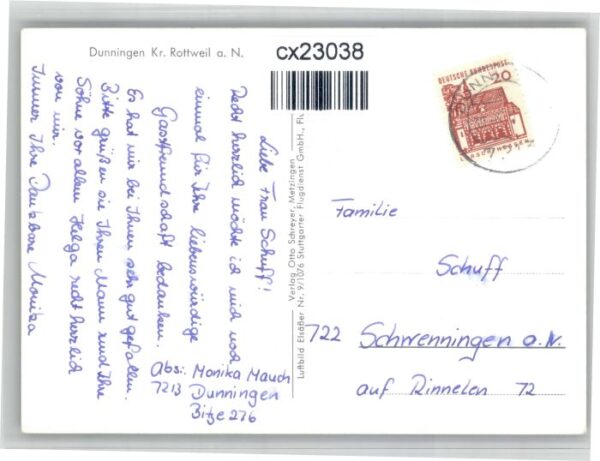 Dunningen Kr. Rottweil a. N.
cx23038
Liebe Frau Schuff!
Recht herzlich möchte ich mich noch
einmal für Ihre liebenswürdige
Gastfreundschaft bedanken.
Es hat mir bei Ihnen sehr gut gefallen.
Bitte grüßen sie Ihren Mann und Ihre
Söhne vor allem Helga recht herzlich
von mir.
Immer Ihre Dankbare Monika
Abs: Monika Mauch
7213 Dunningen
Bitze 276
Verlag Otto Schreyer, Metzingen
Luftbild Elsäßer Nr. 9/1076 Stuttgarter Flugdienst GmbH., Fl
DEUTSCHE BUNDESPOST
20
Familie
Schuff
722 Schwenningen a.N.
auf Rinnelen 72